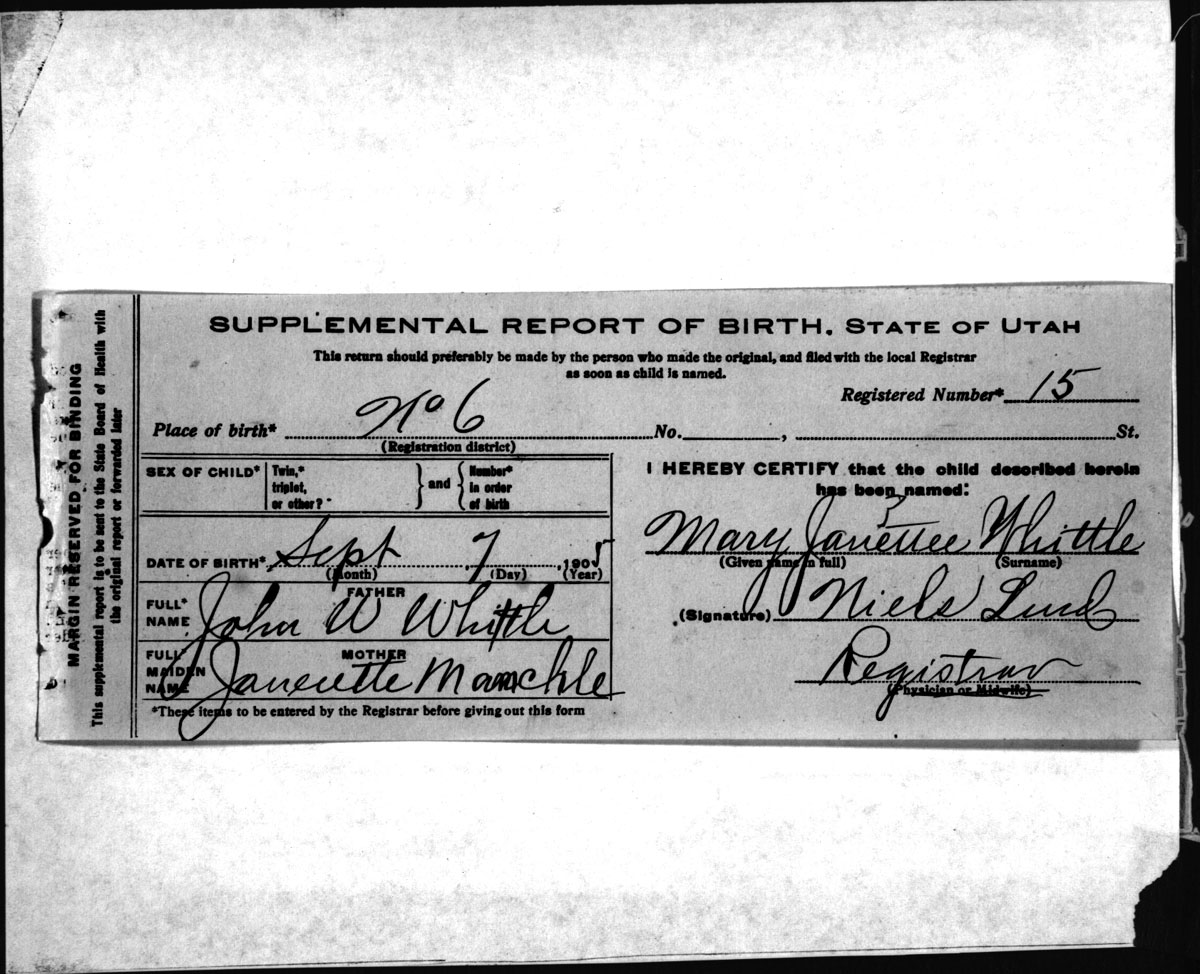 SUPPLEMENTAL REPORT OF BIRTH. STATE OF UTAH
This return should preferably be made by the person who made the original, and filed with the local Registrar
as soon as child is named.
Registered Number* 15
Place of birth* No 6 No. , St.
(Registration district)
SEX OF CHILD* Twin,* triplet, or other? } and { Number* in order of birth
DATE OF BIRTH* Sept 7, 1905
(Month) (Day) (Year)
FATHER
FULL* NAME John W Whittle
MOTHER
FULL MAIDEN NAME Janenette
*These items to be entered by the Registrar before giving out this form
I HEREBY CERTIFY that the child described herein
has been named:
Mary Janettee Whittle
(Given name in full) (Surname)
(Signature) Niels Lund
Registrar
(Physician or Midwife)
MARGIN RESERVED FOR BINDING
This supplemental report is to be sent to the State Board of Health with
the original report or forwarded later